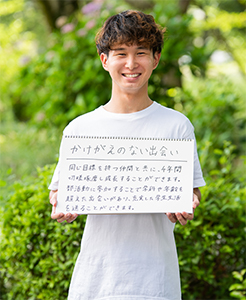 かけがえのない出会い
同じ目標を持つ仲間と共に、4年間
切磋琢磨し成長することができます。
諸活動に参加することで学科や学齢を
超えた出会いがあり、充実した学生生活
を送ることができます。